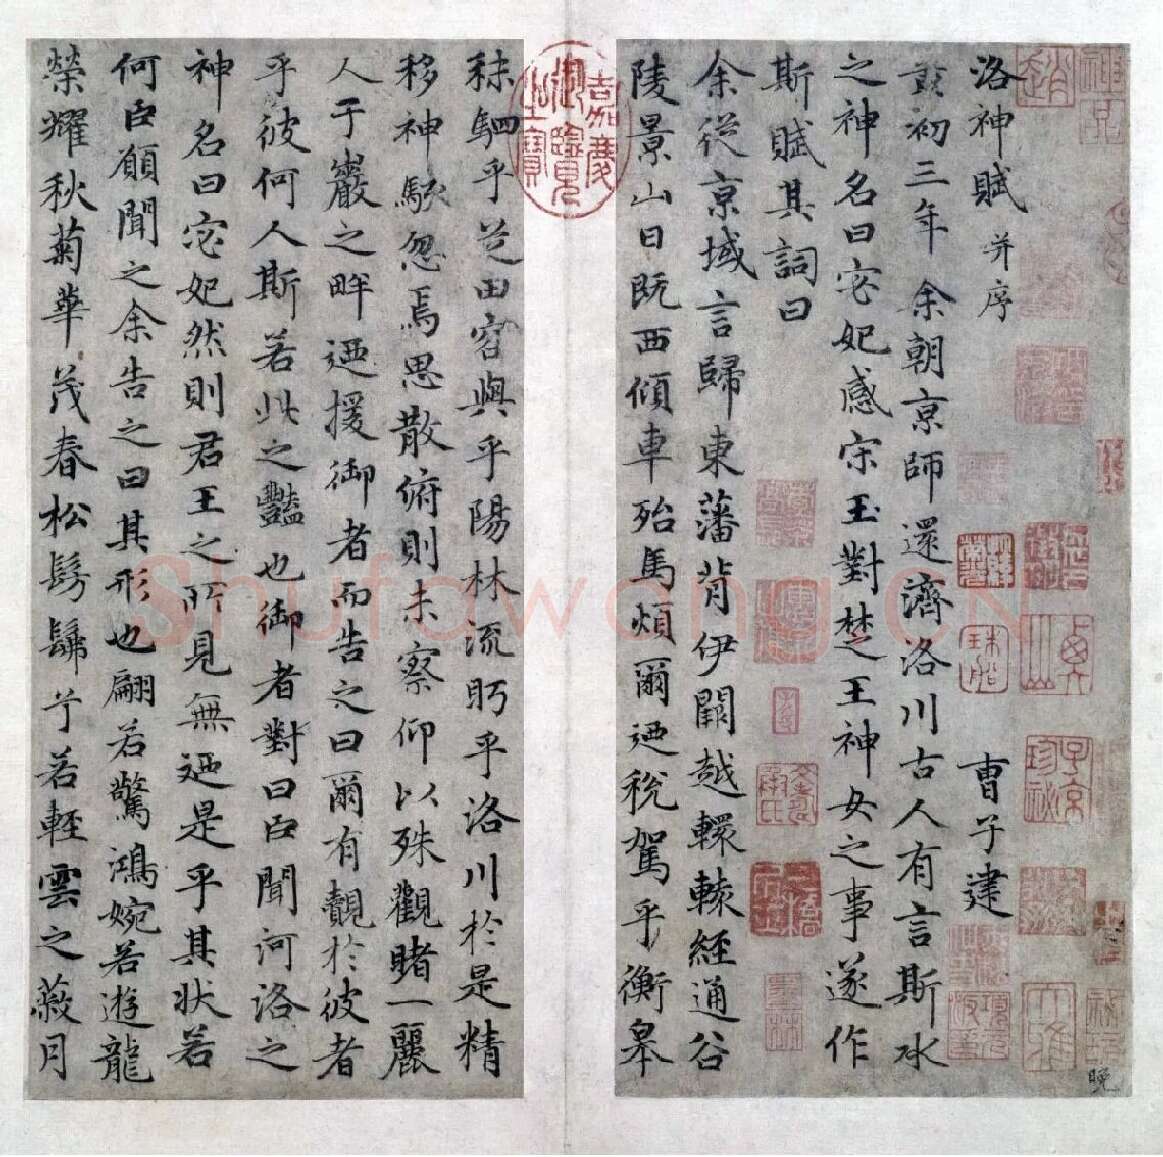 洛神賦 并序 曹子建
黃初三年余朝京師還濟洛川古人有言斯水
之神名曰宓妃感宋玉對楚王神女之事遂作
斯賦其詞曰
余從京域言歸東藩背伊闕越轘轅經通谷
陵景山日既西傾車殆馬煩爾迺稅駕乎衡皋
秣駟乎芝田容與乎陽林流眄乎洛川於是精
移神駭忽焉思散俯則未察仰以殊觀睹一麗
人于巖之畔迺援御者而告之曰爾有覿於彼者
乎彼何人斯若此之豔也御者對曰臣聞河洛之
神名曰宓妃然則君王之所見無迺是乎其狀若
何臣願聞之余告之曰其形也翩若驚鴻婉若遊龍
榮耀秋菊華茂春松髣髴兮若輕雲之蔽月
嘉慶御覽之寶
子京珍秘
Shufawang.CN